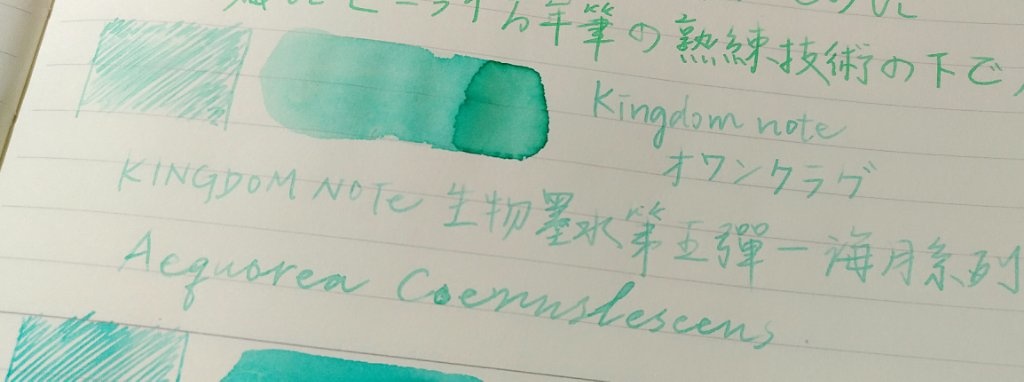 する年筆の熟練技術の下で
Kingdom note
オワンクラゲ
KINGDOM NOTe 生物墨水第五彈－海月系列
Aequorea Coerulescens